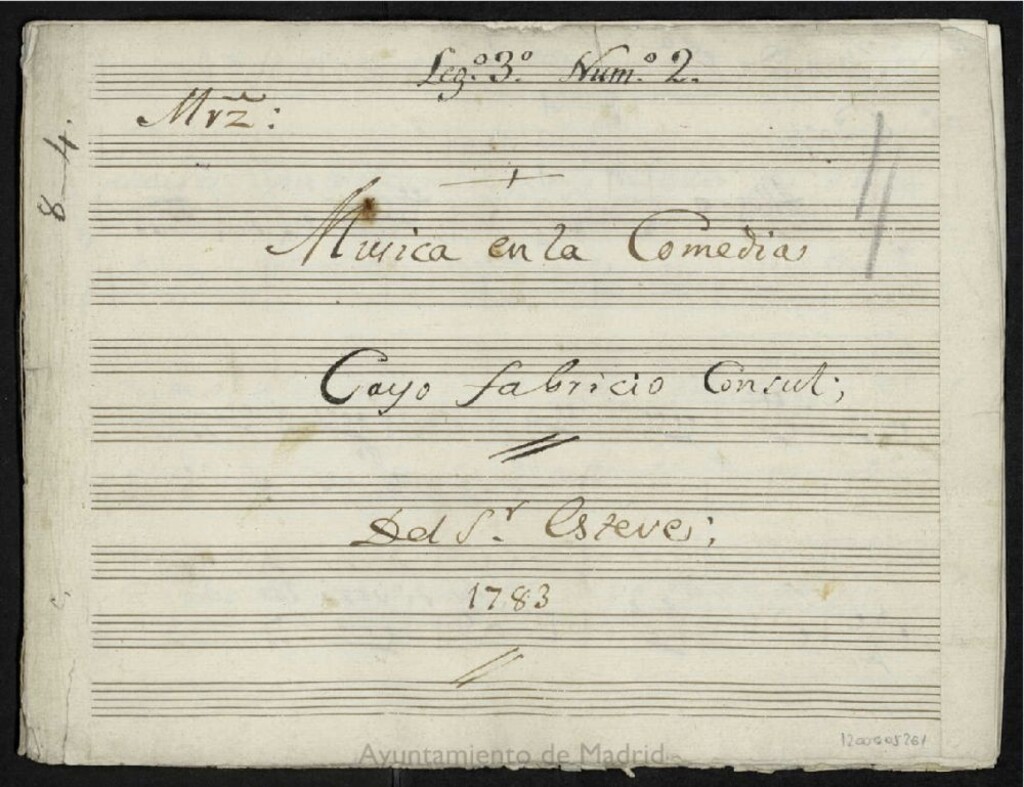 Leg.º 3.º Num.º 2.
Mrz̃:
8-4.
Musica en la Comedia
Cayo fabricio Consul;
Del S.r Esteve;
1783
1200005261
Ayuntamiento de Madrid